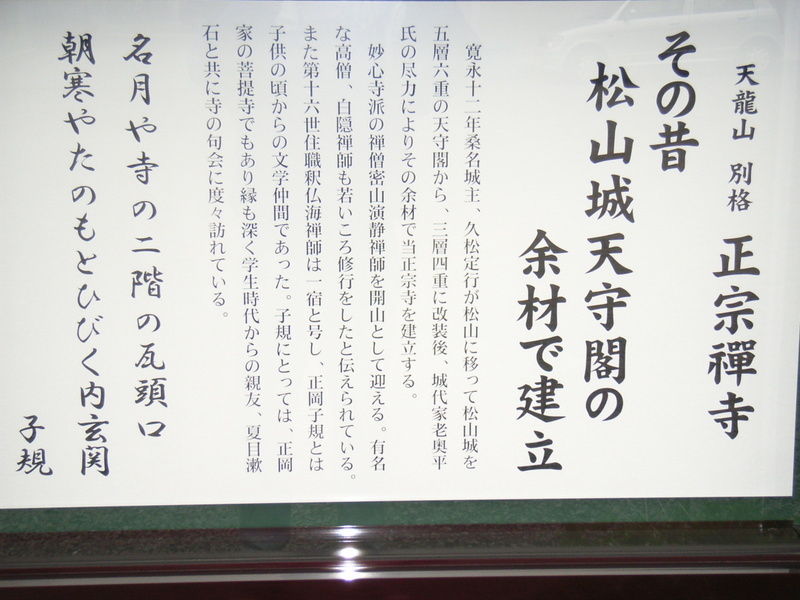 天龍山 別格 正宗禪寺
その昔
松山城天守閣の
余材で建立
寛永十二年桑名城主、久松定行が松山に移って松山城を
五層六重の天守閣から、三層四重に改装後、城代家老奥平
氏の尽力によりその余材で当正宗寺を建立する。
妙心寺派の禅僧密山演静禅師を開山として迎える。有名
な高僧、白隠禅師も若いころ修行をしたと伝えられている。
また第十六世住職釈仏海禅師は一宿と号し、正岡子規とは
子供の頃からの文学仲間であった。子規にとっては、正岡
家の菩提寺でもあり縁も深く学生時代からの親友、夏目漱
石と共に寺の句会に度々訪れている。
名月や寺の二階の瓦頭口
朝寒やたのもとひびく内玄関
子規